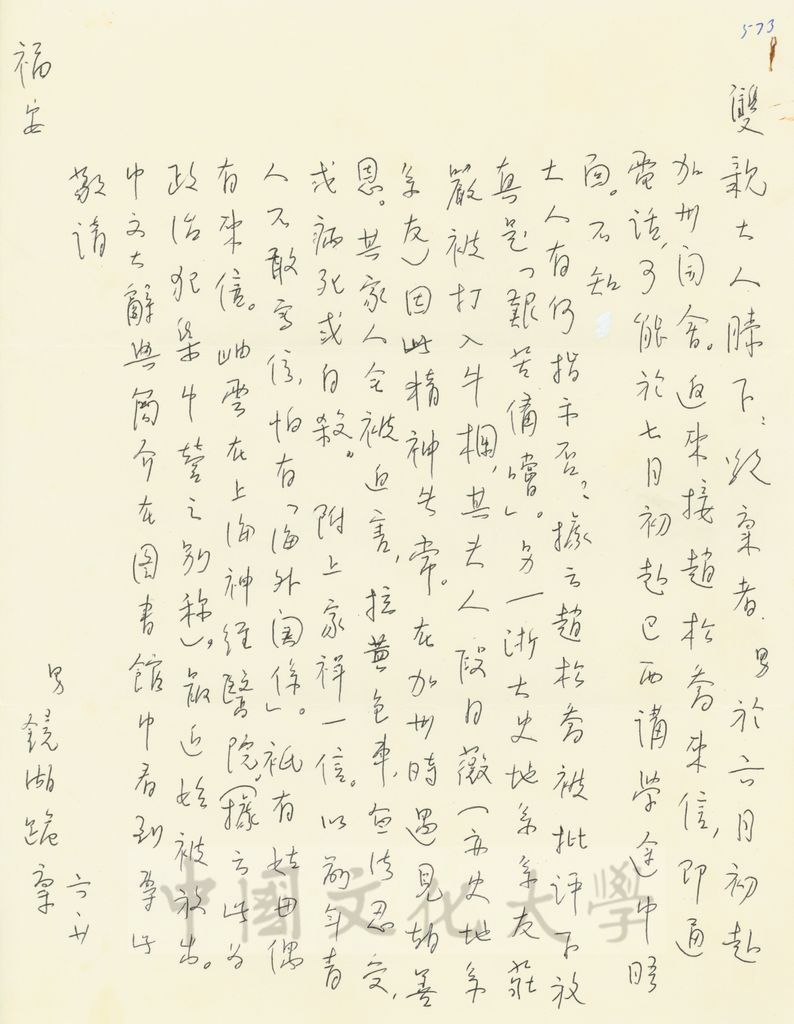 573
雙親大人膝下：敬稟者，男於六月初赴
加州開會。返來接趙松喬來信，即通
電話，可能於七月初赴巴西講學途中晤
面。不知
大人有何指示否？據云趙松喬被批評下放
真是「艱苦備嚐」。另一浙大史地系系友莊
嚴被打入牛欄，其夫人段月薇（亦史地系
系友）因此精神失常。在加州時遇見胡善
恩。其家人全被迫害，拉黃包車，無法忍受，
或病死或自殺。附上家祥一信。以前年青
人不敢寫信，怕有「海外關係」。祇有姑母偶
有來信。岫雲在上海神經醫院，（據云此為
政治犯集中營之別稱）。最近始被放出。
中文大辭典簡介在圖書館中看到。專此
敬請
福安
男 鏡湖跪稟
六、廿
中國文化大學